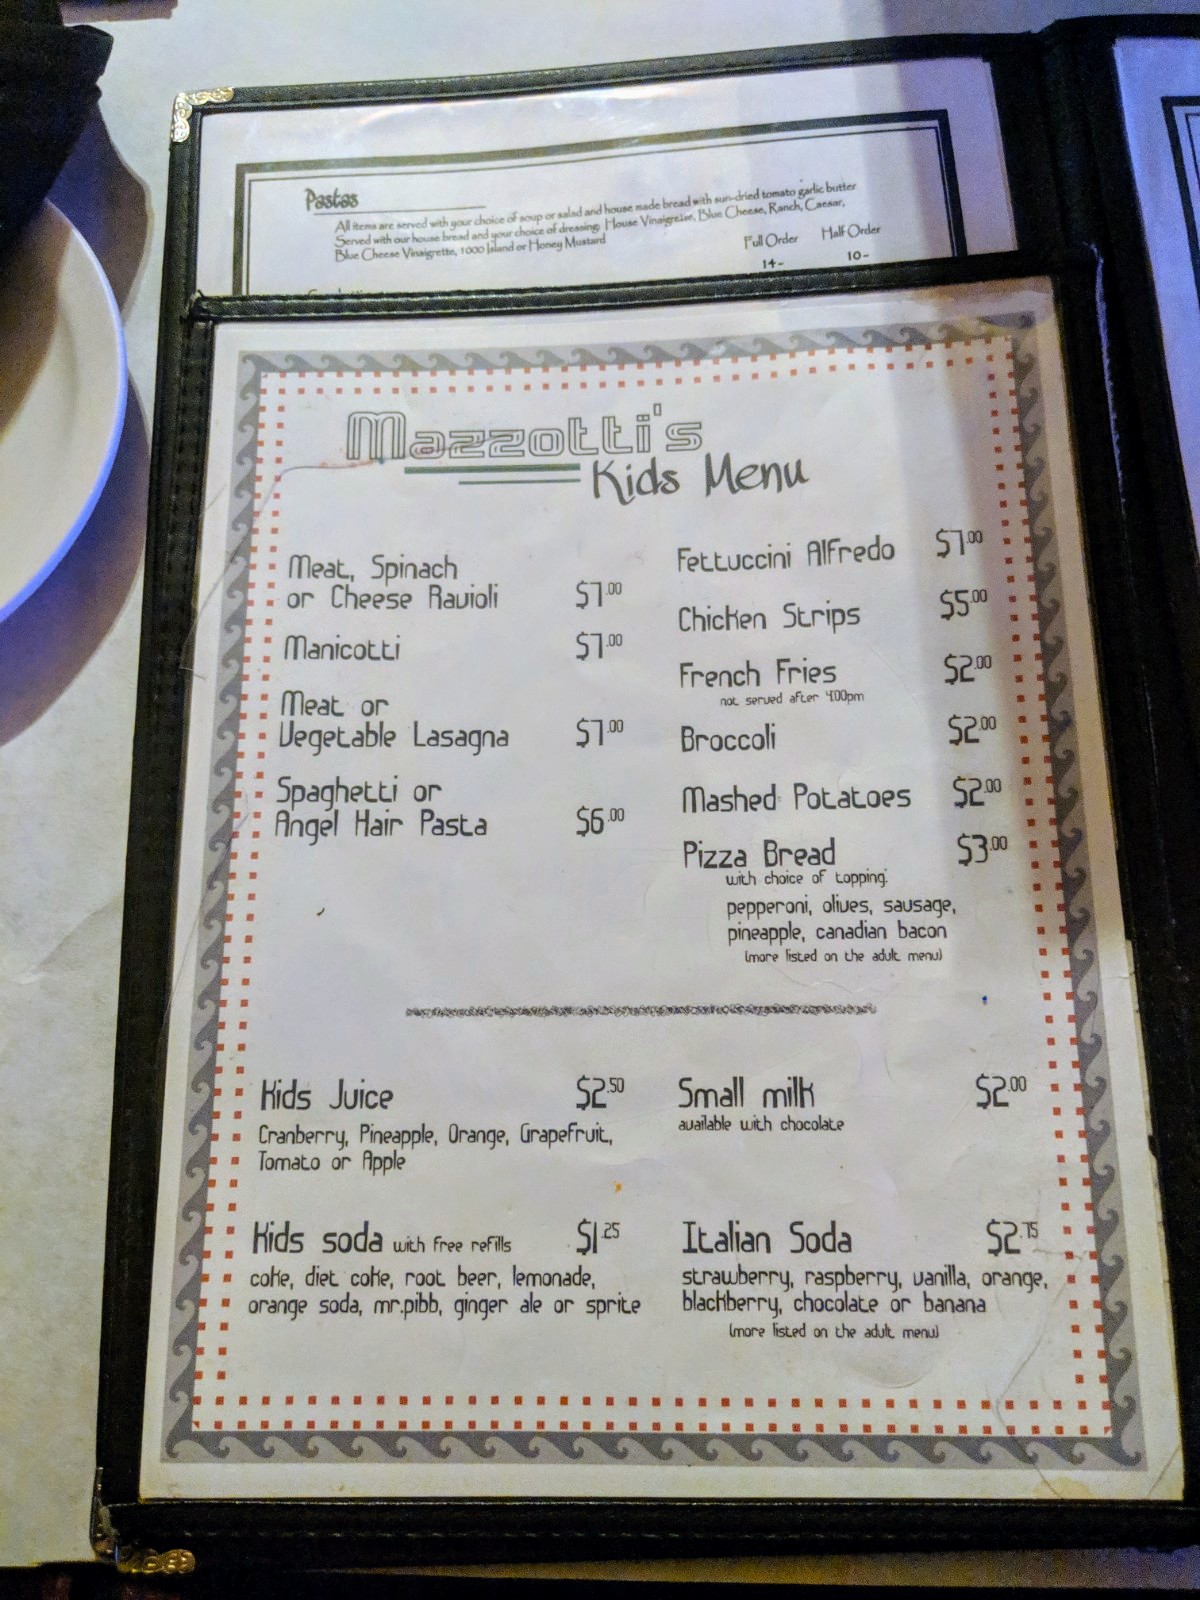 Pastas
All items are served with your choice of soup or salad and house made bread with sun-dried tomato garlic butter
Served with our house bread and your choice of dressing: House Vinaigrette, Blue Cheese, Ranch, Caesar,
Blue Cheese Vinaigrette, 1000 Island or Honey Mustard
Full Order Half Order
14- 10-
Mazzotti's
Kids Menu
Meat, Spinach
or Cheese Ravioli $7.00
Manicotti $7.00
Meat or
Vegetable Lasagna $7.00
Spaghetti or
Angel Hair Pasta $6.00
Fettuccini Alfredo $7.00
Chicken Strips $5.00
French Fries $2.00
not served after 4:00pm
Broccoli $2.00
Mashed Potatoes $2.00
Pizza Bread $3.00
with choice of topping:
pepperoni, olives, sausage,
pineapple, canadian bacon
(more listed on the adult menu)
Kids Juice $2.50
Cranberry, Pineapple, Orange, Grapefruit,
Tomato or Apple
Small milk $2.00
available with chocolate
Kids soda with free refills $1.25
coke, diet coke, root beer, lemonade,
orange soda, mr.pibb, ginger ale or sprite
Italian Soda $2.75
strawberry, raspberry, vanilla, orange,
blackberry, chocolate or banana
(more listed on the adult menu)